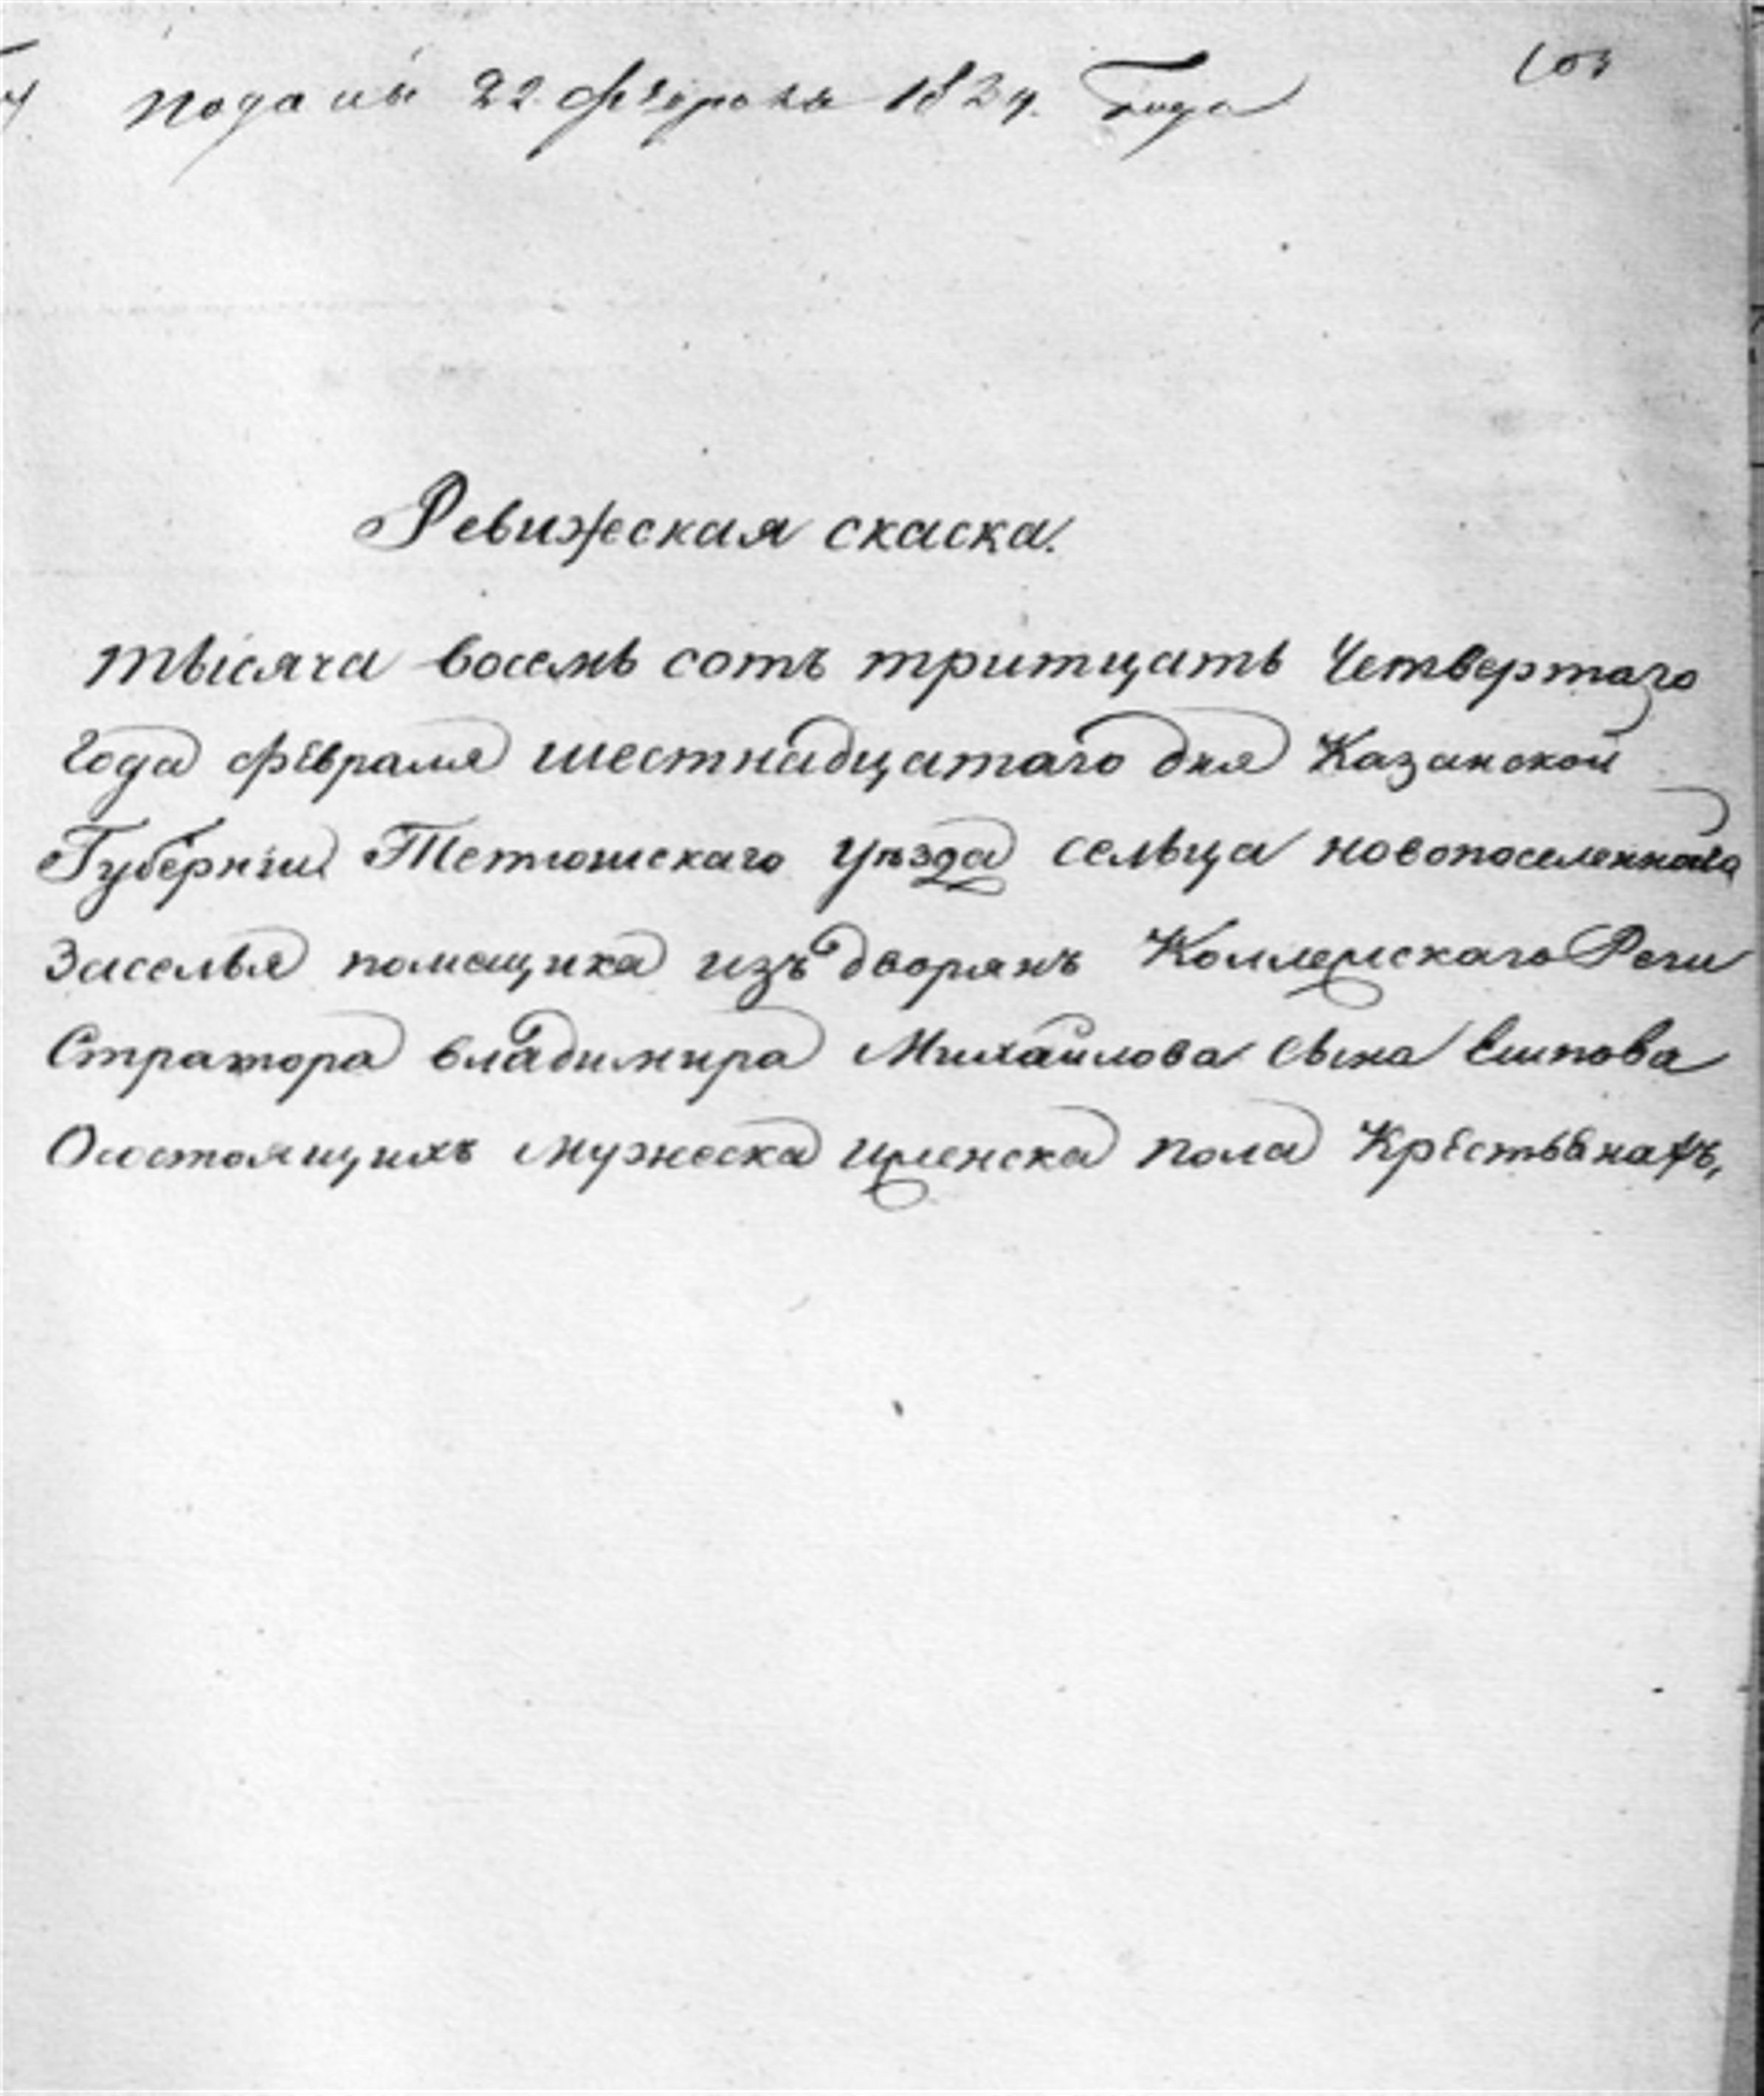 поданы 22 февраля 1834. Года
Ревижеская скаска.
тысяча восемь сотъ тритцать Четвертаго
Года февраля шестнадцатаго дня Казанской
Губерніи Тетюшскаго уѣзда сельца новопоселеннаго
Заселья помещика изъ дворянъ Коллежскаго Реги
Стратора владимира Михайлова сына Есипова
Осостоящихъ мужеска ижен​ска пола Крестьянахъ,